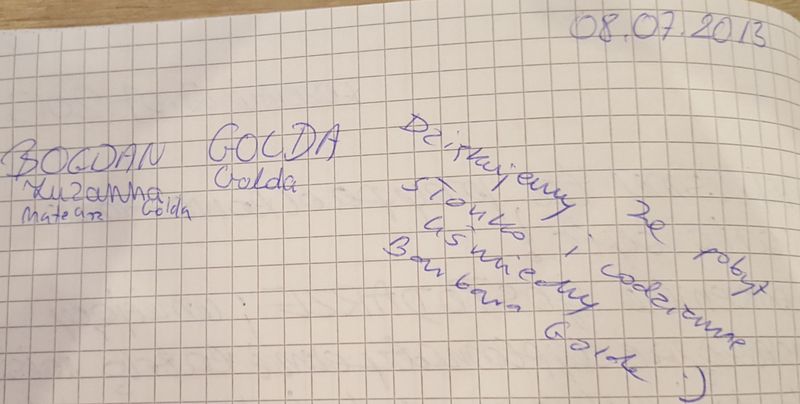 08.07.2013
BOGDAN GOLDA
Zuzanna Golda
Mateusz Golda
Dziękujemy za pobyt
słonko i codzienne
uśmiechy
Barbara Golda :)